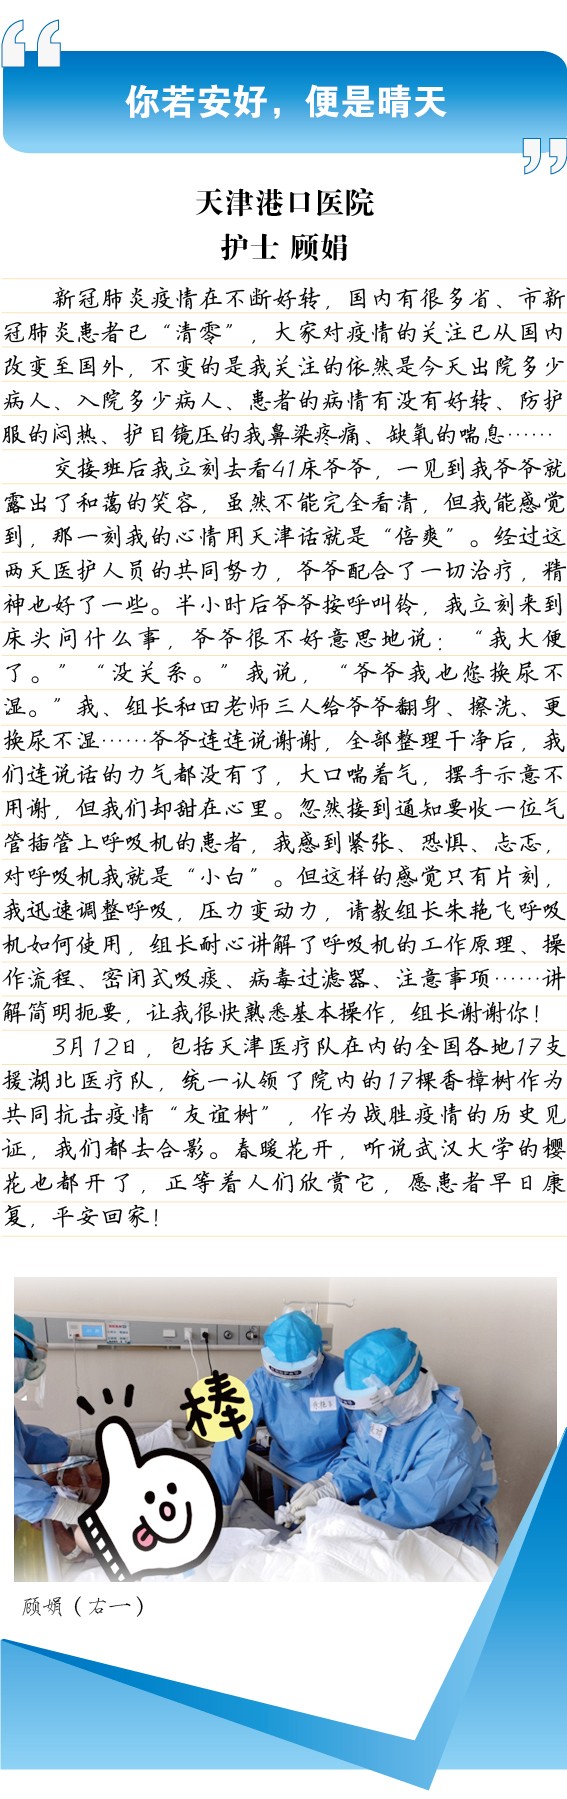 你若安好，便是晴天
天津港口医院
护士 顾娟
新冠肺炎疫情在不断好转，国内有很多省、市新
冠肺炎患者已“清零”，大家对疫情的关注已从国内
改变至国外，不变的是我关注的依然是今天出院多少
病人、入院多少病人、患者的病情有没有好转、防护
服的闷热、护目镜压的我鼻梁疼痛、缺氧的喘息……
交接班后我立刻去看41床爷爷，一见到我爷爷就
露出了和蔼的笑容，虽然不能完全看清，但我能感觉
到，那一刻我的心情用天津话就是“倍爽”。经过这
两天医护人员的共同努力，爷爷配合了一切治疗，精
神也好了一些。半小时后爷爷按呼叫铃，我立刻来到
床头问什么事，爷爷很不好意思地说：“我大便
了。”“没关系。”我说，“爷爷我也您换尿不
湿。”我、组长和田老师三人给爷爷翻身、擦洗、更
换尿不湿……爷爷连连说谢谢，全部整理干净后，我
们连说话的力气都没有了，大口喘着气，摆手示意不
用谢，但我们却甜在心里。忽然接到通知要收一位气
管插管上呼吸机的患者，我感到紧张、恐惧、忐忑，
对呼吸机我就是“小白”。但这样的感觉只有片刻，
我迅速调整呼吸，压力变动力，请教组长朱艳飞呼吸
机如何使用，组长耐心讲解了呼吸机的工作原理、操
作流程、密闭式吸痰、病毒过滤器、注意事项……讲
解简明扼要，让我很快熟悉基本操作，组长谢谢你！
3月12日，包括天津医疗队在内的全国各地17支
援湖北医疗队，统一认领了院内的17棵香樟树作为
共同抗击疫情“友谊树”，作为战胜疫情的历史见
证，我们都去合影。春暖花开，听说武汉大学的樱
花也都开了，正等着人们欣赏它，愿患者早日康
复，平安回家！
棒
顾娟（右一）